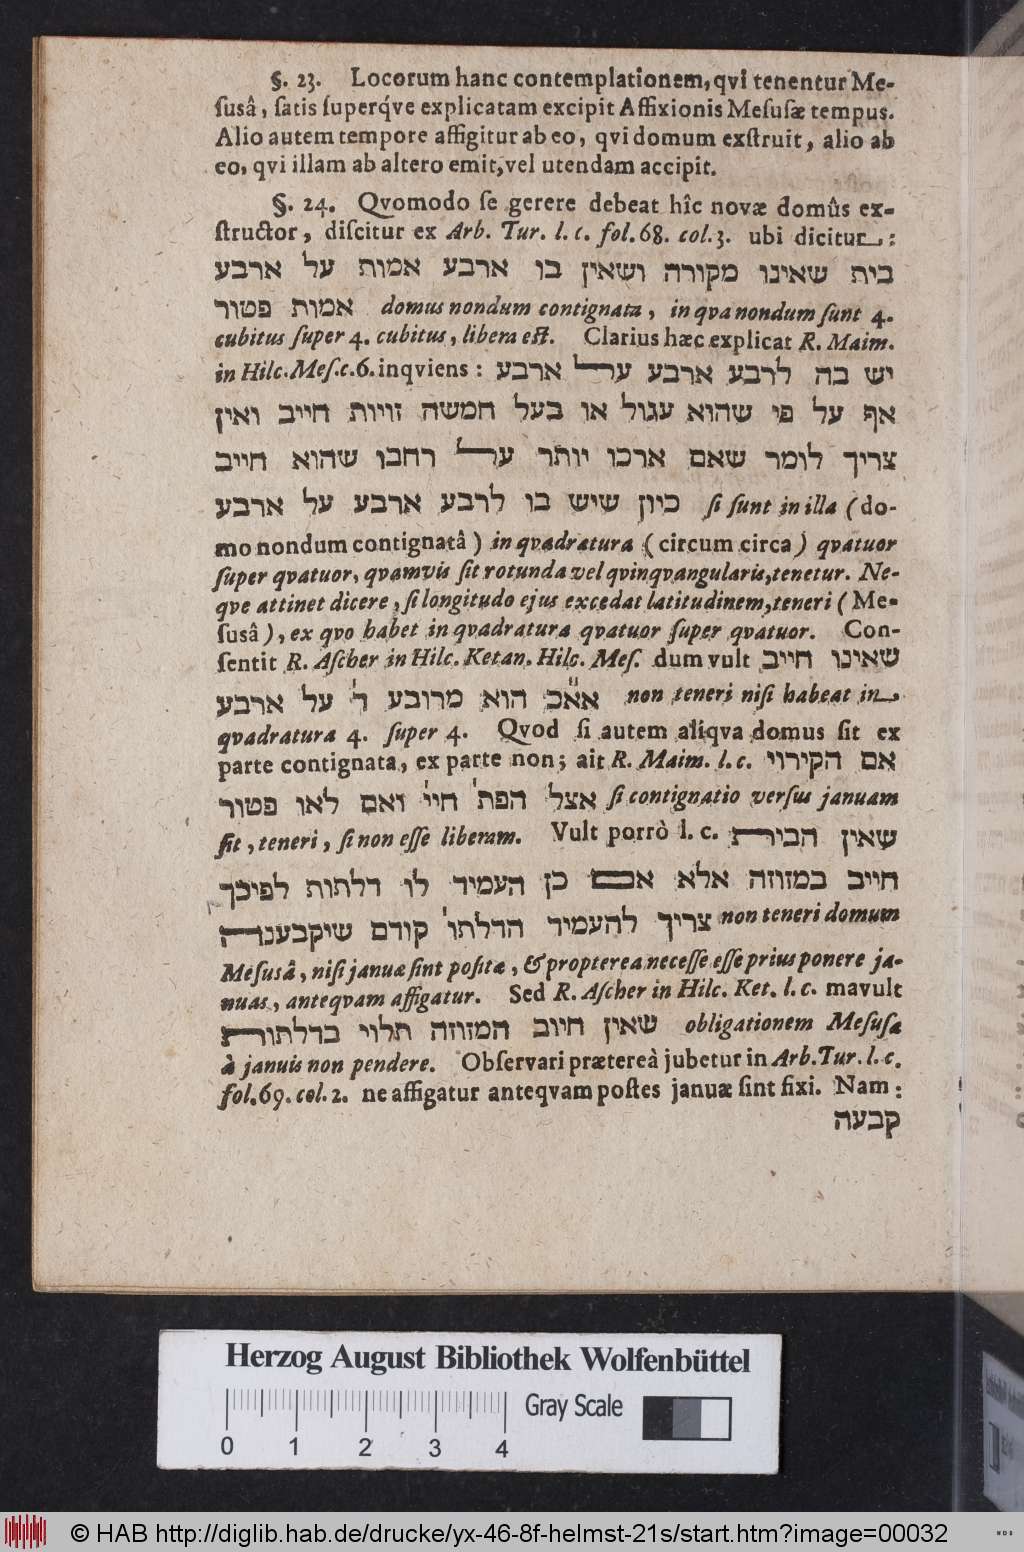 §. 23. Locorum hanc contemplationem, qvi tenentur Me-
ſusâ, ſatis ſuperqve explicatam excipit Affixionis Meſuſæ tempus.
Alio autem tempore affigitur ab eo, qvi domum exſtruit, alio ab
eo, qvi illam ab altero emit, vel utendam accipit.
§. 24. Qvomodo ſe gerere debeat hîc novæ domûs ex-
ſtructor, diſcitur ex Arb. Tur. l. c. fol. 68. col. 3. ubi dicitur:
בית שאינו מקורה ושאין בו ארבע אמות על ארבע
אמות פטור domus nondum contignata, in qva nondum ſunt 4.
cubitus ſuper 4. cubitus, libera eſt. Clarius hæc explicat R. Maim.
in Hilc. Meſ. c. 6. inqviens: יש בה לרבע ארבע על ארבע
אף על פי שהוא עגול או בעל חמשה זויות חייב ואין
צריך לומר שאם ארכו יותר על רחבו שהוא חייב
כיון שיש בו לרבע ארבע על ארבע ſi ſunt in illa (do-
mo nondum contignatâ) in qvadratura (circum circa) qvatuor
ſuper qvatuor, qvamvis ſit rotunda vel qvinqvangularis, tenetur. Ne-
qve attinet dicere, ſi longitudo ejus excedat latitudinem, teneri (Me-
ſusâ), ex qvo habet in qvadratura qvatuor ſuper qvatuor. Con-
ſentit R. Aſcher in Hilc. Ketan. Hilc. Meſ. dum vult שאינו חייב
אא״כ הוא מרובע ד' על ארבע non teneri niſi habeat in
qvadratura 4. ſuper 4. Qvod ſi autem aliqva domus ſit ex
parte contignata, ex parte non; ait R. Maim. l. c. אם הקירוי
אצל הפת' חיי' ואם לאו פטור ſi contignatio verſus januam
ſit, teneri, ſi non eſſe liberam. Vult porrò l. c. שאין הבית
חייב במזוזה אלא אם כן העמיד לו דלתות לפיכך
צריך להעמיד הדלתו' קודם שיקבענה non teneri domum
Meſusâ, niſi januæ ſint poſitæ, & propterea neceſſe eſſe prius ponere ja-
nuas, anteqvam affigatur. Sed R. Aſcher in Hilc. Ket. l. c. mavult
שאין חיוב המזוזה תלוי בדלתות obligationem Meſuſæ
à januis non pendere. Obſervari prætereà jubetur in Arb. Tur. l. c.
fol. 69. col. 2. ne affigatur anteqvam poſtes januæ ſint fixi. Nam:
קבעה
Herzog August Bibliothek Wolfenbüttel
Gray Scale
0 1 2 3 4
© HAB http://diglib.hab.de/drucke/yx-46-8f-helmst-21s/start.htm?image=00032